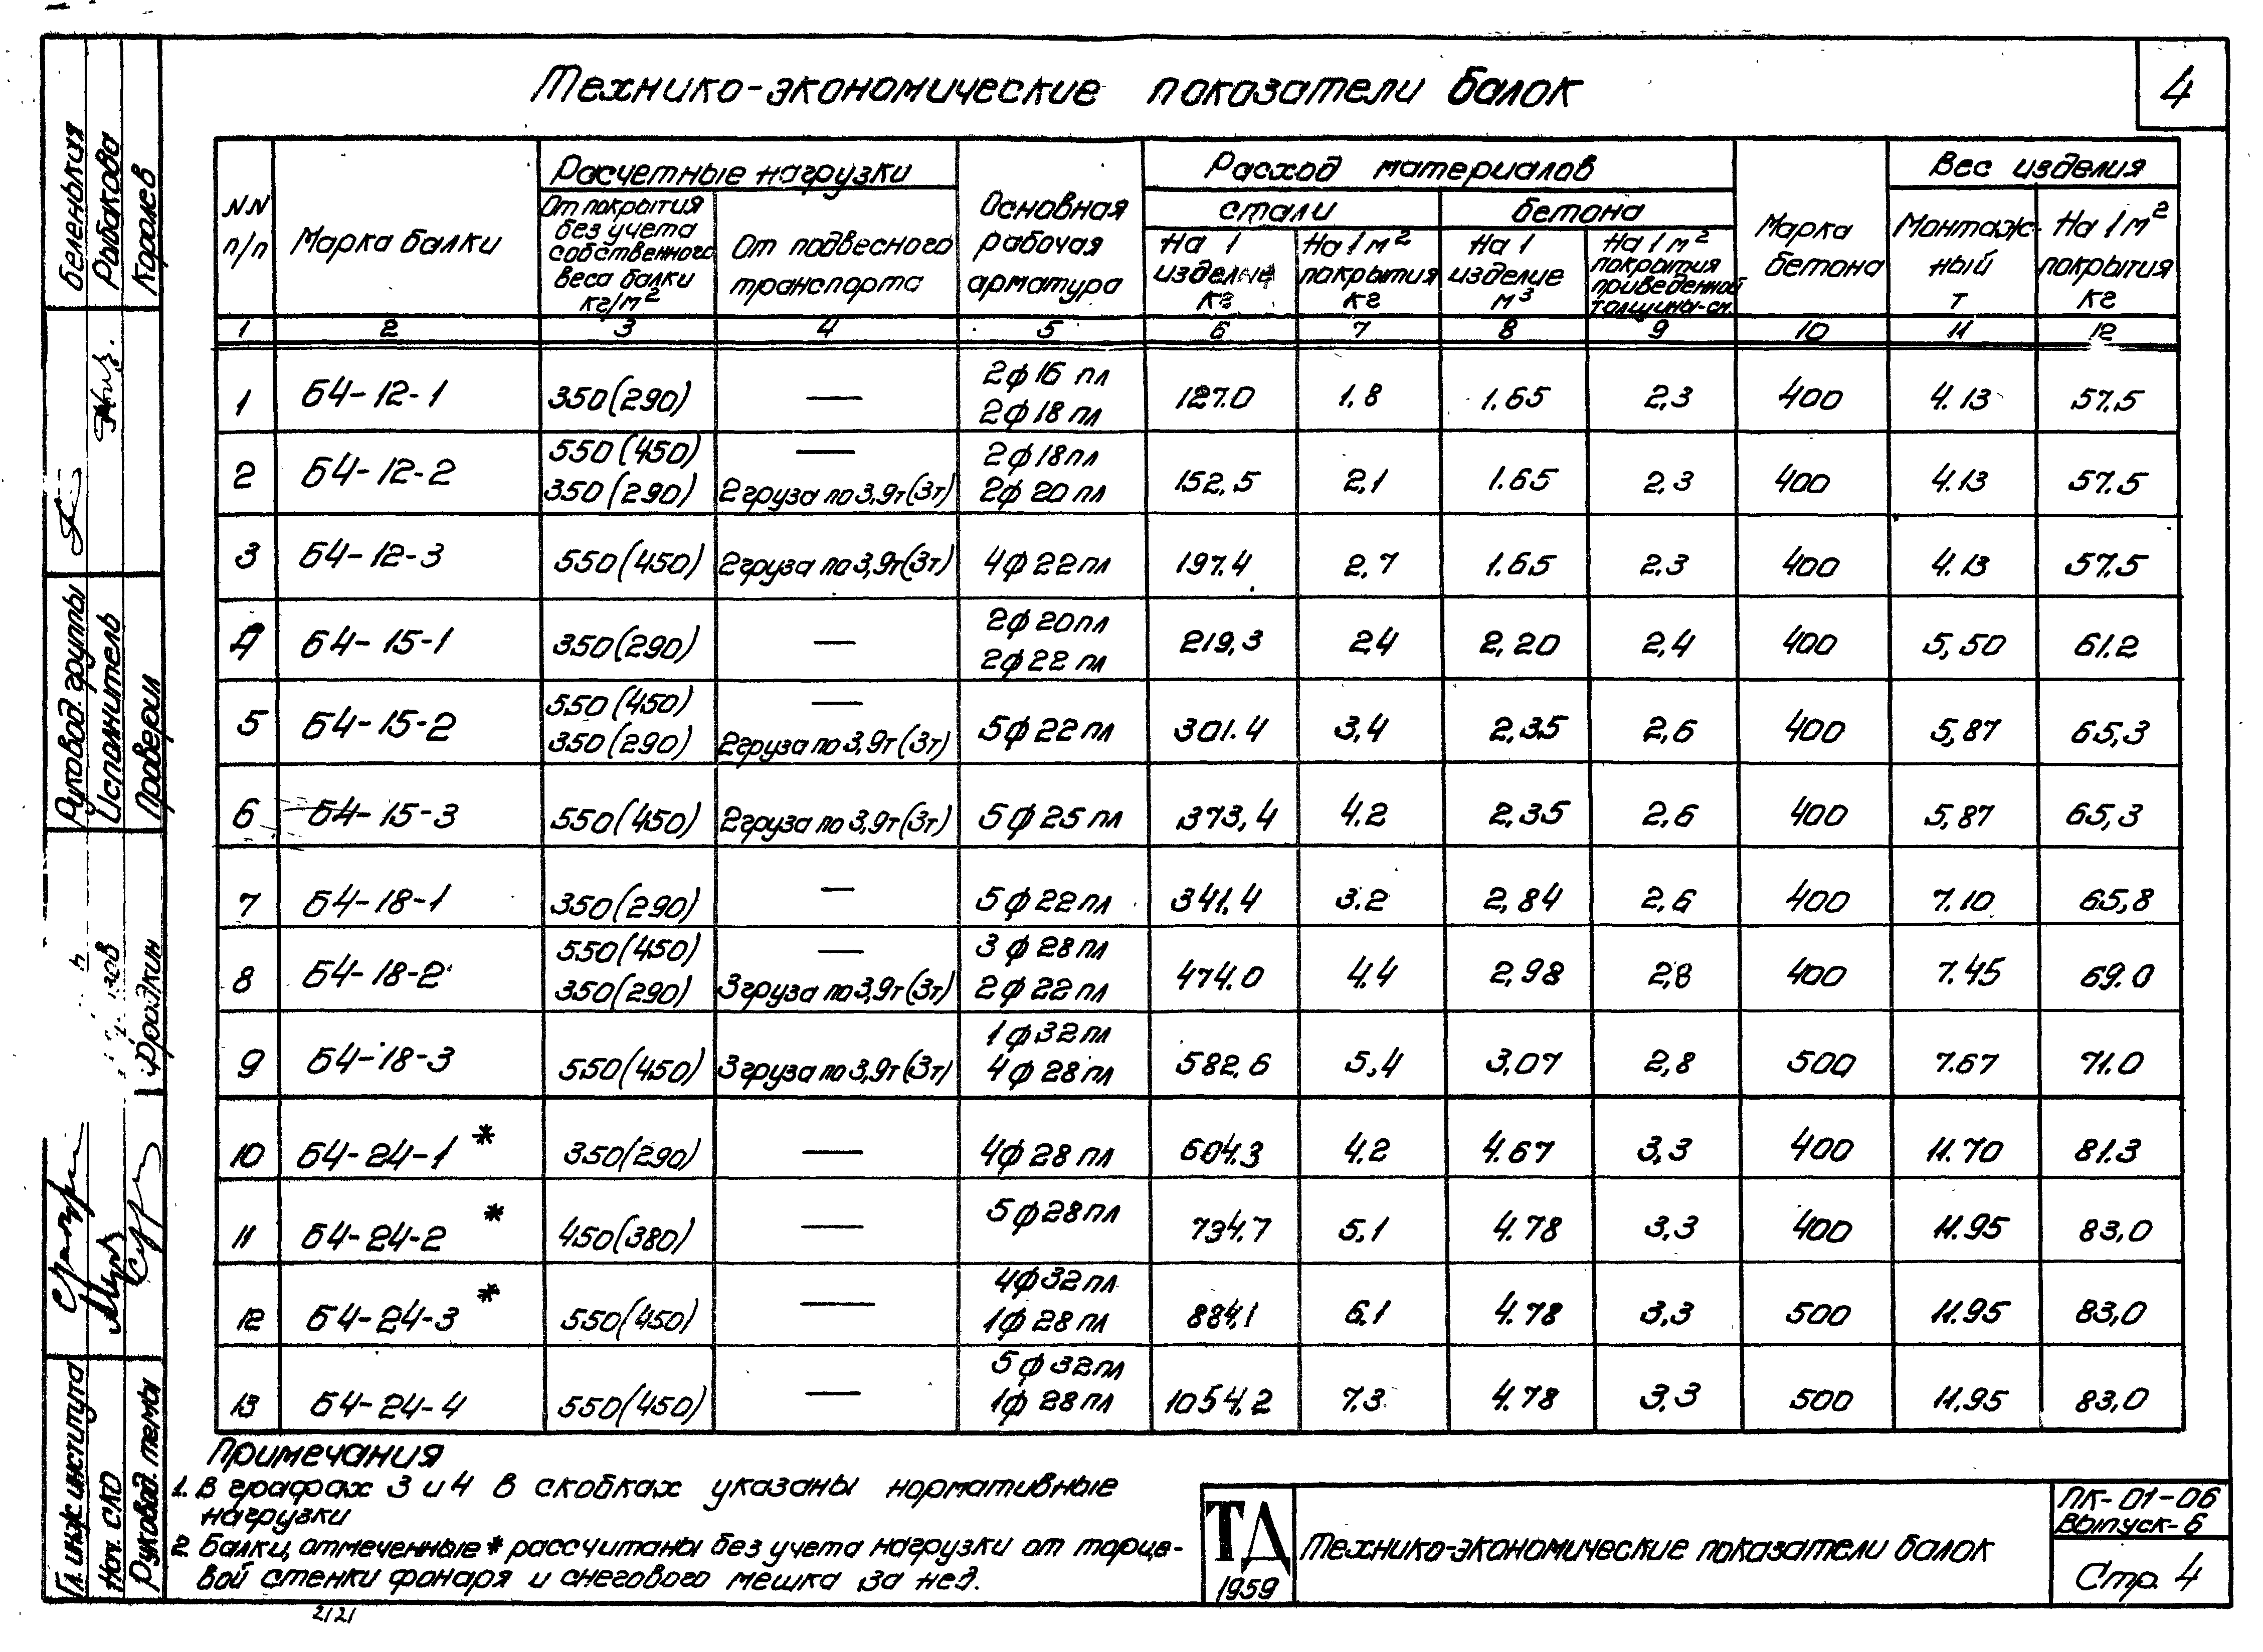 Технико-экономические показатели балок
4
NN п/п
Марка балки
Расчетные нагрузки
От покрытия без учета собственного веса балки кг/м²
От подвесного транспорта
Основная рабочая арматура
Расход материалов
стали
бетона
На 1 изделие кг
На 1 м² покрытия кг
На 1 изделие м³
На 1 м² покрытия приведенной толщины-см.
Марка бетона
Вес изделия
Монтаж-ный т
На 1 м² покрытия кг
1 2 3 4 5 6 7 8 9 10 11 12
1 Б4-12-1 350(290) — 2ф16 пл 2ф18 пл 127.0 1.8 1.65 2,3 400 4.13 57.5
2 Б4-12-2 550(450) — 350(290) 2 груза по 3,9т(3т) 2ф18пл 2ф20 пл 152,5 2,1 1.65 2.3 400 4.13 57.5
3 Б4-12-3 550(450) 2 груза по 3,9т(3т) 4ф22пл 197.4 2,7 1.65 2.3 400 4.13 57.5
4 Б4-15-1 350(290) — 2ф20пл 2ф22 пл 219,3 2,4 2,20 2,4 400 5,50 61.2
5 Б4-15-2 550(450) — 350(290) 2 груза по 3,9т(3т) 5ф22 пл 301.4 3,4 2,35 2,6 400 5,87 65,3
6 Б4-15-3 550(450) 2 груза по 3,9т(3т) 5ф25 пл 373,4 4.2 2,35 2,6 400 5,87 65,3
7 Б4-18-1 350(290) — 5ф22пл 341.4 3.2 2,84 2,6 400 7.10 65,8
8 Б4-18-2 550(450) — 350(290) 3 груза по 3,9т(3т) 3ф28пл 2ф22пл 474.0 4.4 2,98 2,8 400 7.45 69.0
9 Б4-18-3 550(450) 3 груза по 3,9т(3т) 1ф32пл 4ф28пл 582,6 5,4 3,07 2,8 500 7.67 71.0
10 Б4-24-1* 350(290) — 4ф28 пл 604.3 4.2 4.67 3,3 400 11.70 81.3
11 Б4-24-2* 450(380) — 5ф28пл 734.7 5,1 4.78 3,3 400 11.95 83,0
12 Б4-24-3* 550(450) — 4ф32пл 1ф28 пл 884,1 6,1 4.78 3,3 500 11.95 83,0
13 Б4-24-4 550(450) — 5ф32пл 1ф28 пл 1054.2 7.3 4.78 3,3 500 11.95 83,0
Примечания
1. В графах 3 и 4 в скобках указаны нормативные
нагрузки
2. Балки, отмеченные * рассчитаны без учета нагрузки от торце-
вой стенки фонаря и снегового мешка за нед.
ТД
1959
Технико-экономические показатели балок
ПК-01-06
Выпуск-6
Стр. 4
2121
Беленькия
Рыбакова
Королев
Руковод. группы
Исполнитель
Проверил
Фрадкин
Гл. инж. института
Нач. СКО
Руковод. темы